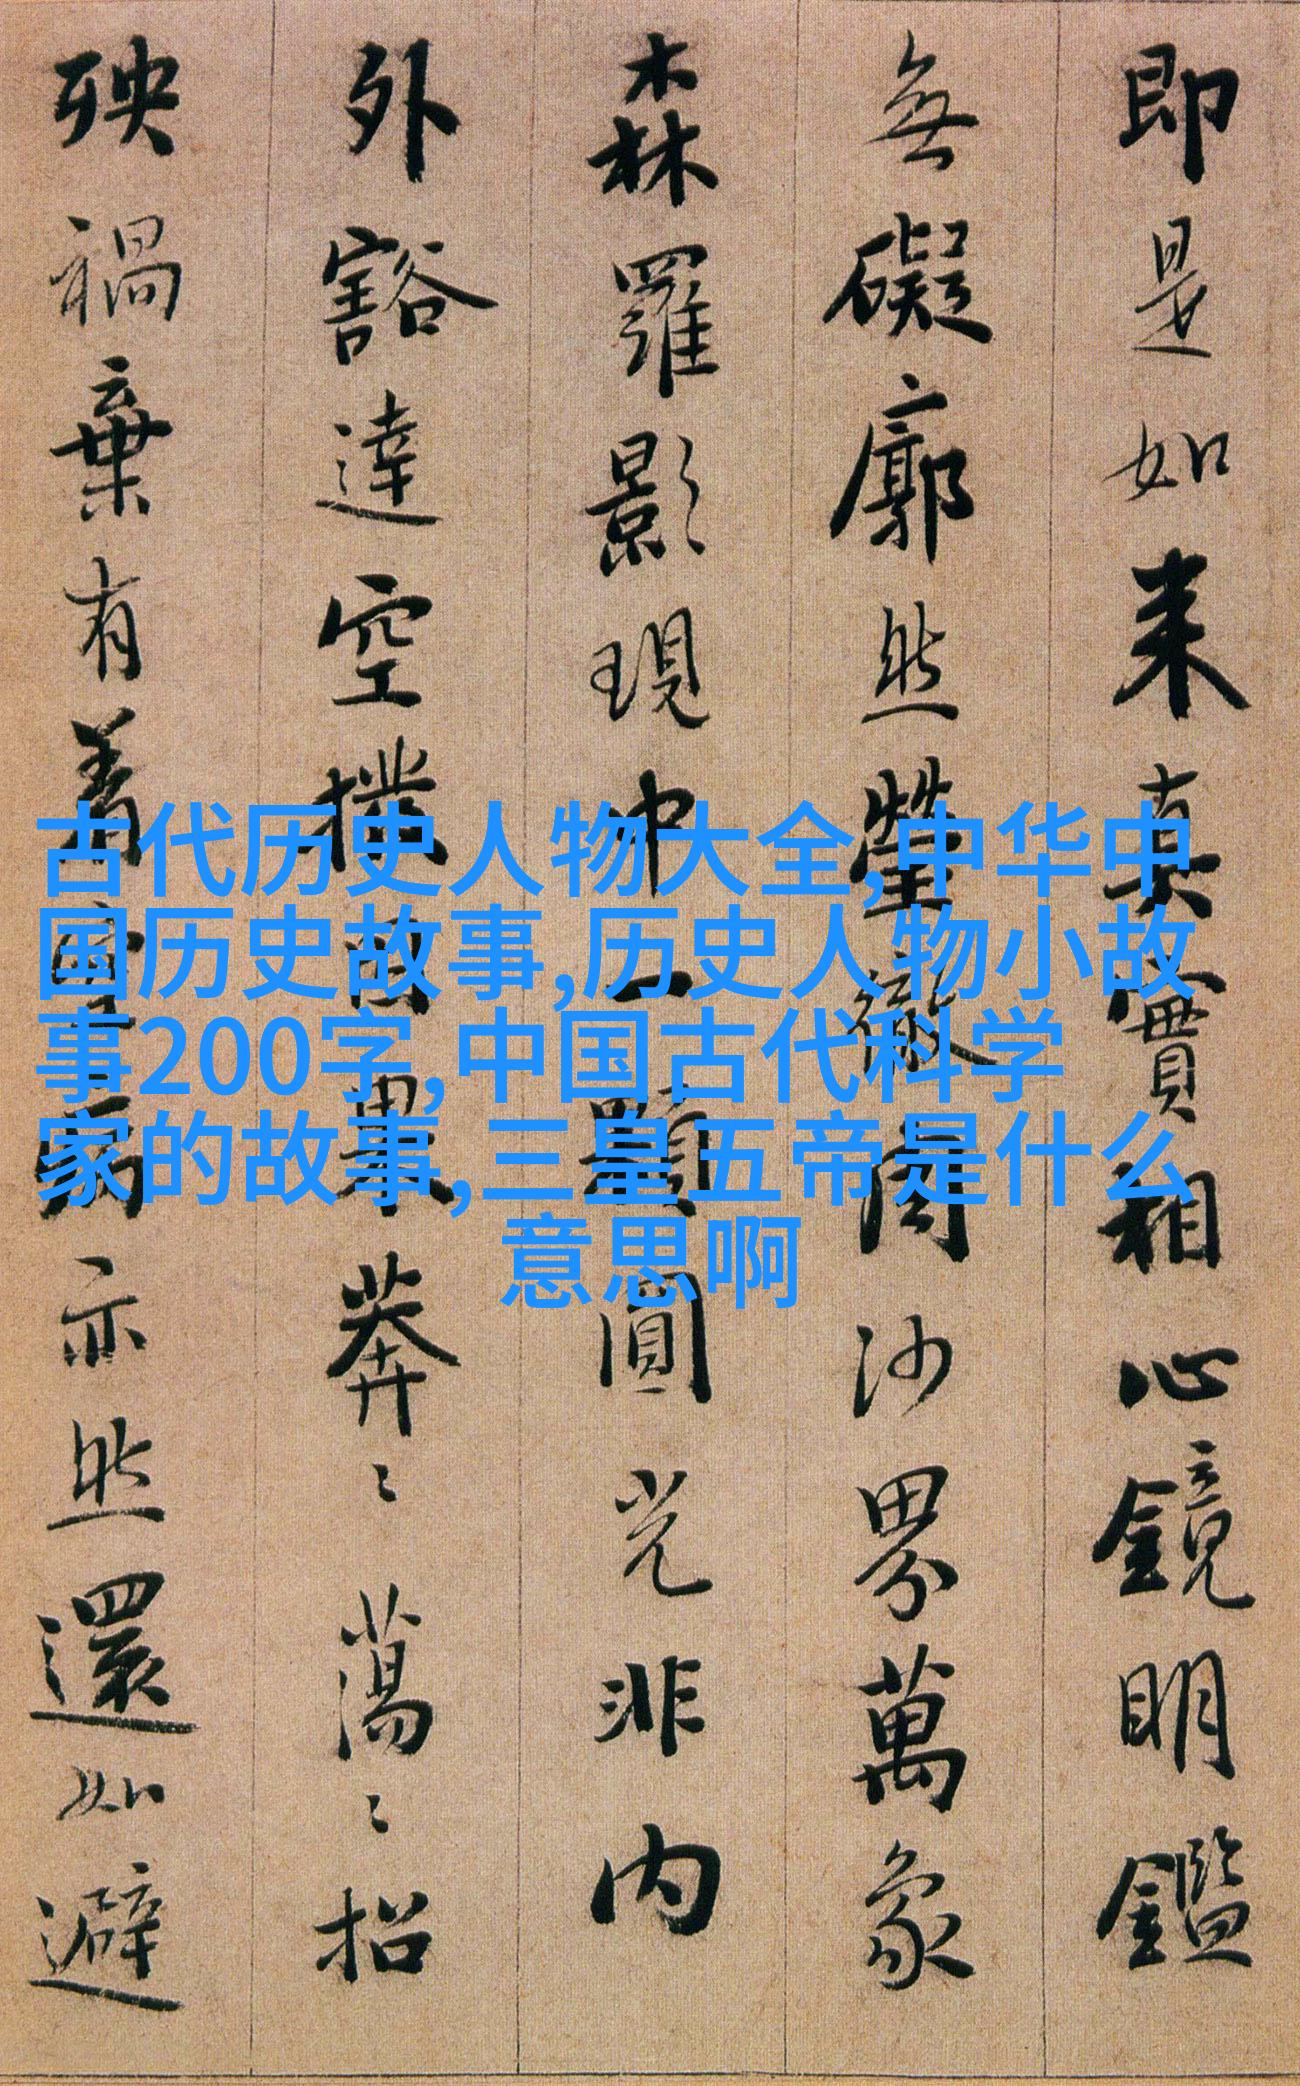 即是如来真實相心鏡明鑑
無礙廓然瑩徹周沙界萬象
森羅影現中一顆圓光非内
外豁達空撥因果莽〻蕩〻招
殃禍棄有着空病亦然還如避
古代历史人物大全,中华中
国历史故事,历史人物小故
事200字,中国古代科学
家的故事,三皇五帝是什么
意思啊